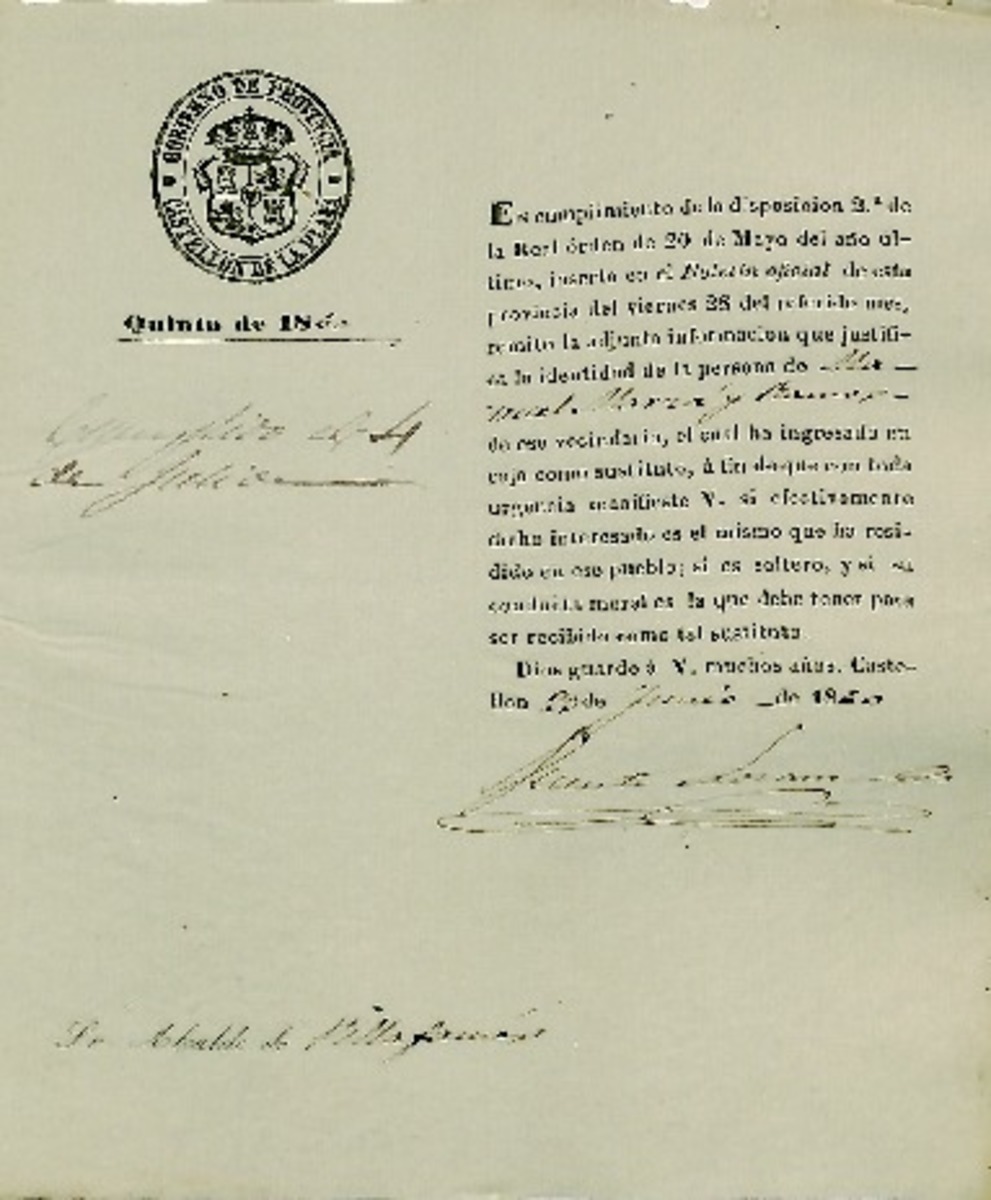 GOBIERNO DE PROVINCIA
CASTELLON DE LA PLANA
Quinta de 18
Cumplido el 4
de Julio
En cumplimiento de la disposicion 2.ª de
la Real órden de 20 de Mayo del año úl-
timo, inserta en el Boletin oficial de esta
provincia del viernes 28 del referido mes,
remito la adjunta informacion que justifi-
ca la identidad de la persona de Ma-
nuel y Ramos
de ese vecindario, el cual ha ingresado en
caja como sustituto, á fin de que con toda
urgencia manifieste V. si efectivamente
dicho interesado es el mismo que ha resi-
dido en ese pueblo; si es soltero, y si su
conducta moral es la que debe tener para
ser recibido como tal sustituto.
Dios guarde á V. muchos años. Caste-
llon de Junio de 18
Vicente
Sr Alcalde de Villafamés